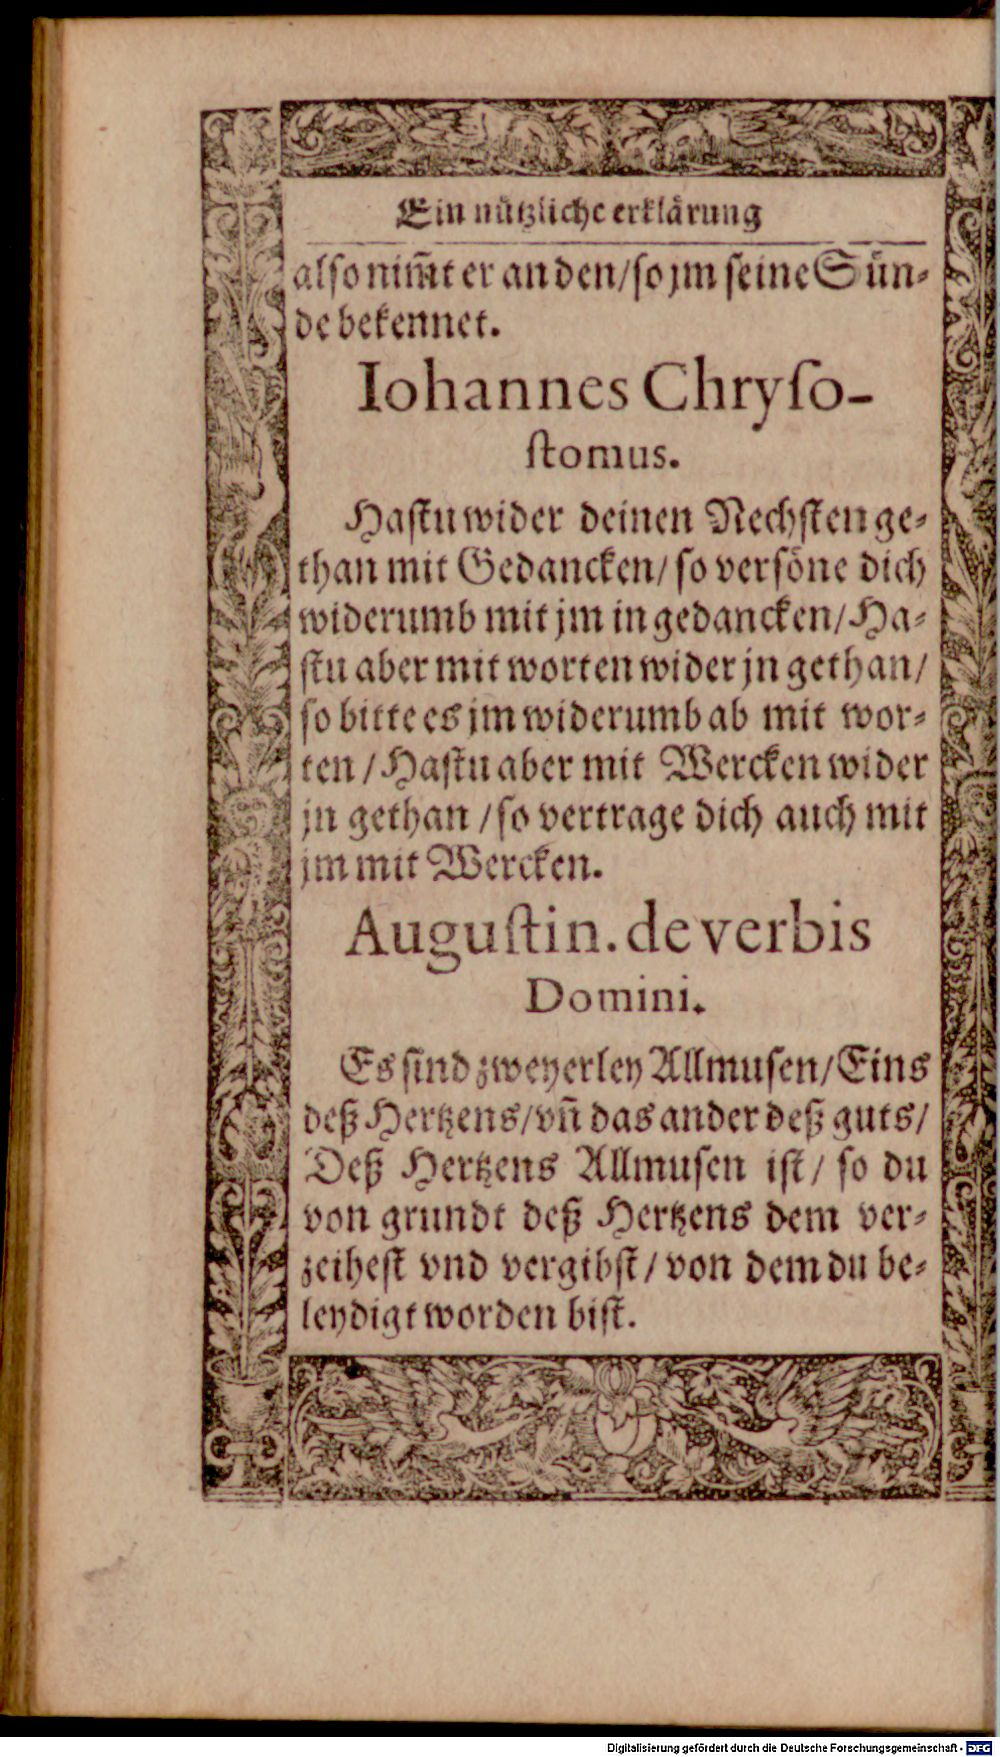 Ein nützliche erklärung
also nim̃t er an den/ so jm seine Sün⸗
de bekennet.
Iohannes Chryſo-
ſtomus.
Hastu wider deinen Nechsten ge⸗
than mit Gedancken/ so versöne dich
widerumb mit jm in gedancken/ Ha⸗
stu aber mit worten wider jn gethan/
so bitte es jm widerumb ab mit wor⸗
ten/ Hastu aber mit Wercken wider
jn gethan/ so vertrage dich auch mit
jm mit Wercken.
Auguſtin. de verbis
Domini.
Es sind zweyerley Allmusen/ Eins
deß Hertzens/ vñ das ander deß guts/
Deß Hertzens Allmusen ist/ so du
von grundt deß Hertzens dem ver⸗
zeihest vnd vergibst/ von dem du be⸗
leydigt worden bist.
Digitalisierung gefördert durch die Deutsche Forschungsgemeinschaft - DFG